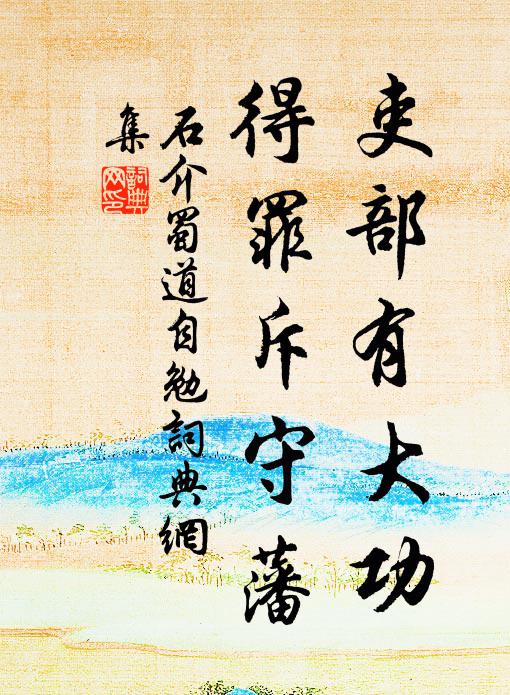 吏部有大功
得罪斥守藩
石介蜀道自勉詞典網
集
詞典
网印